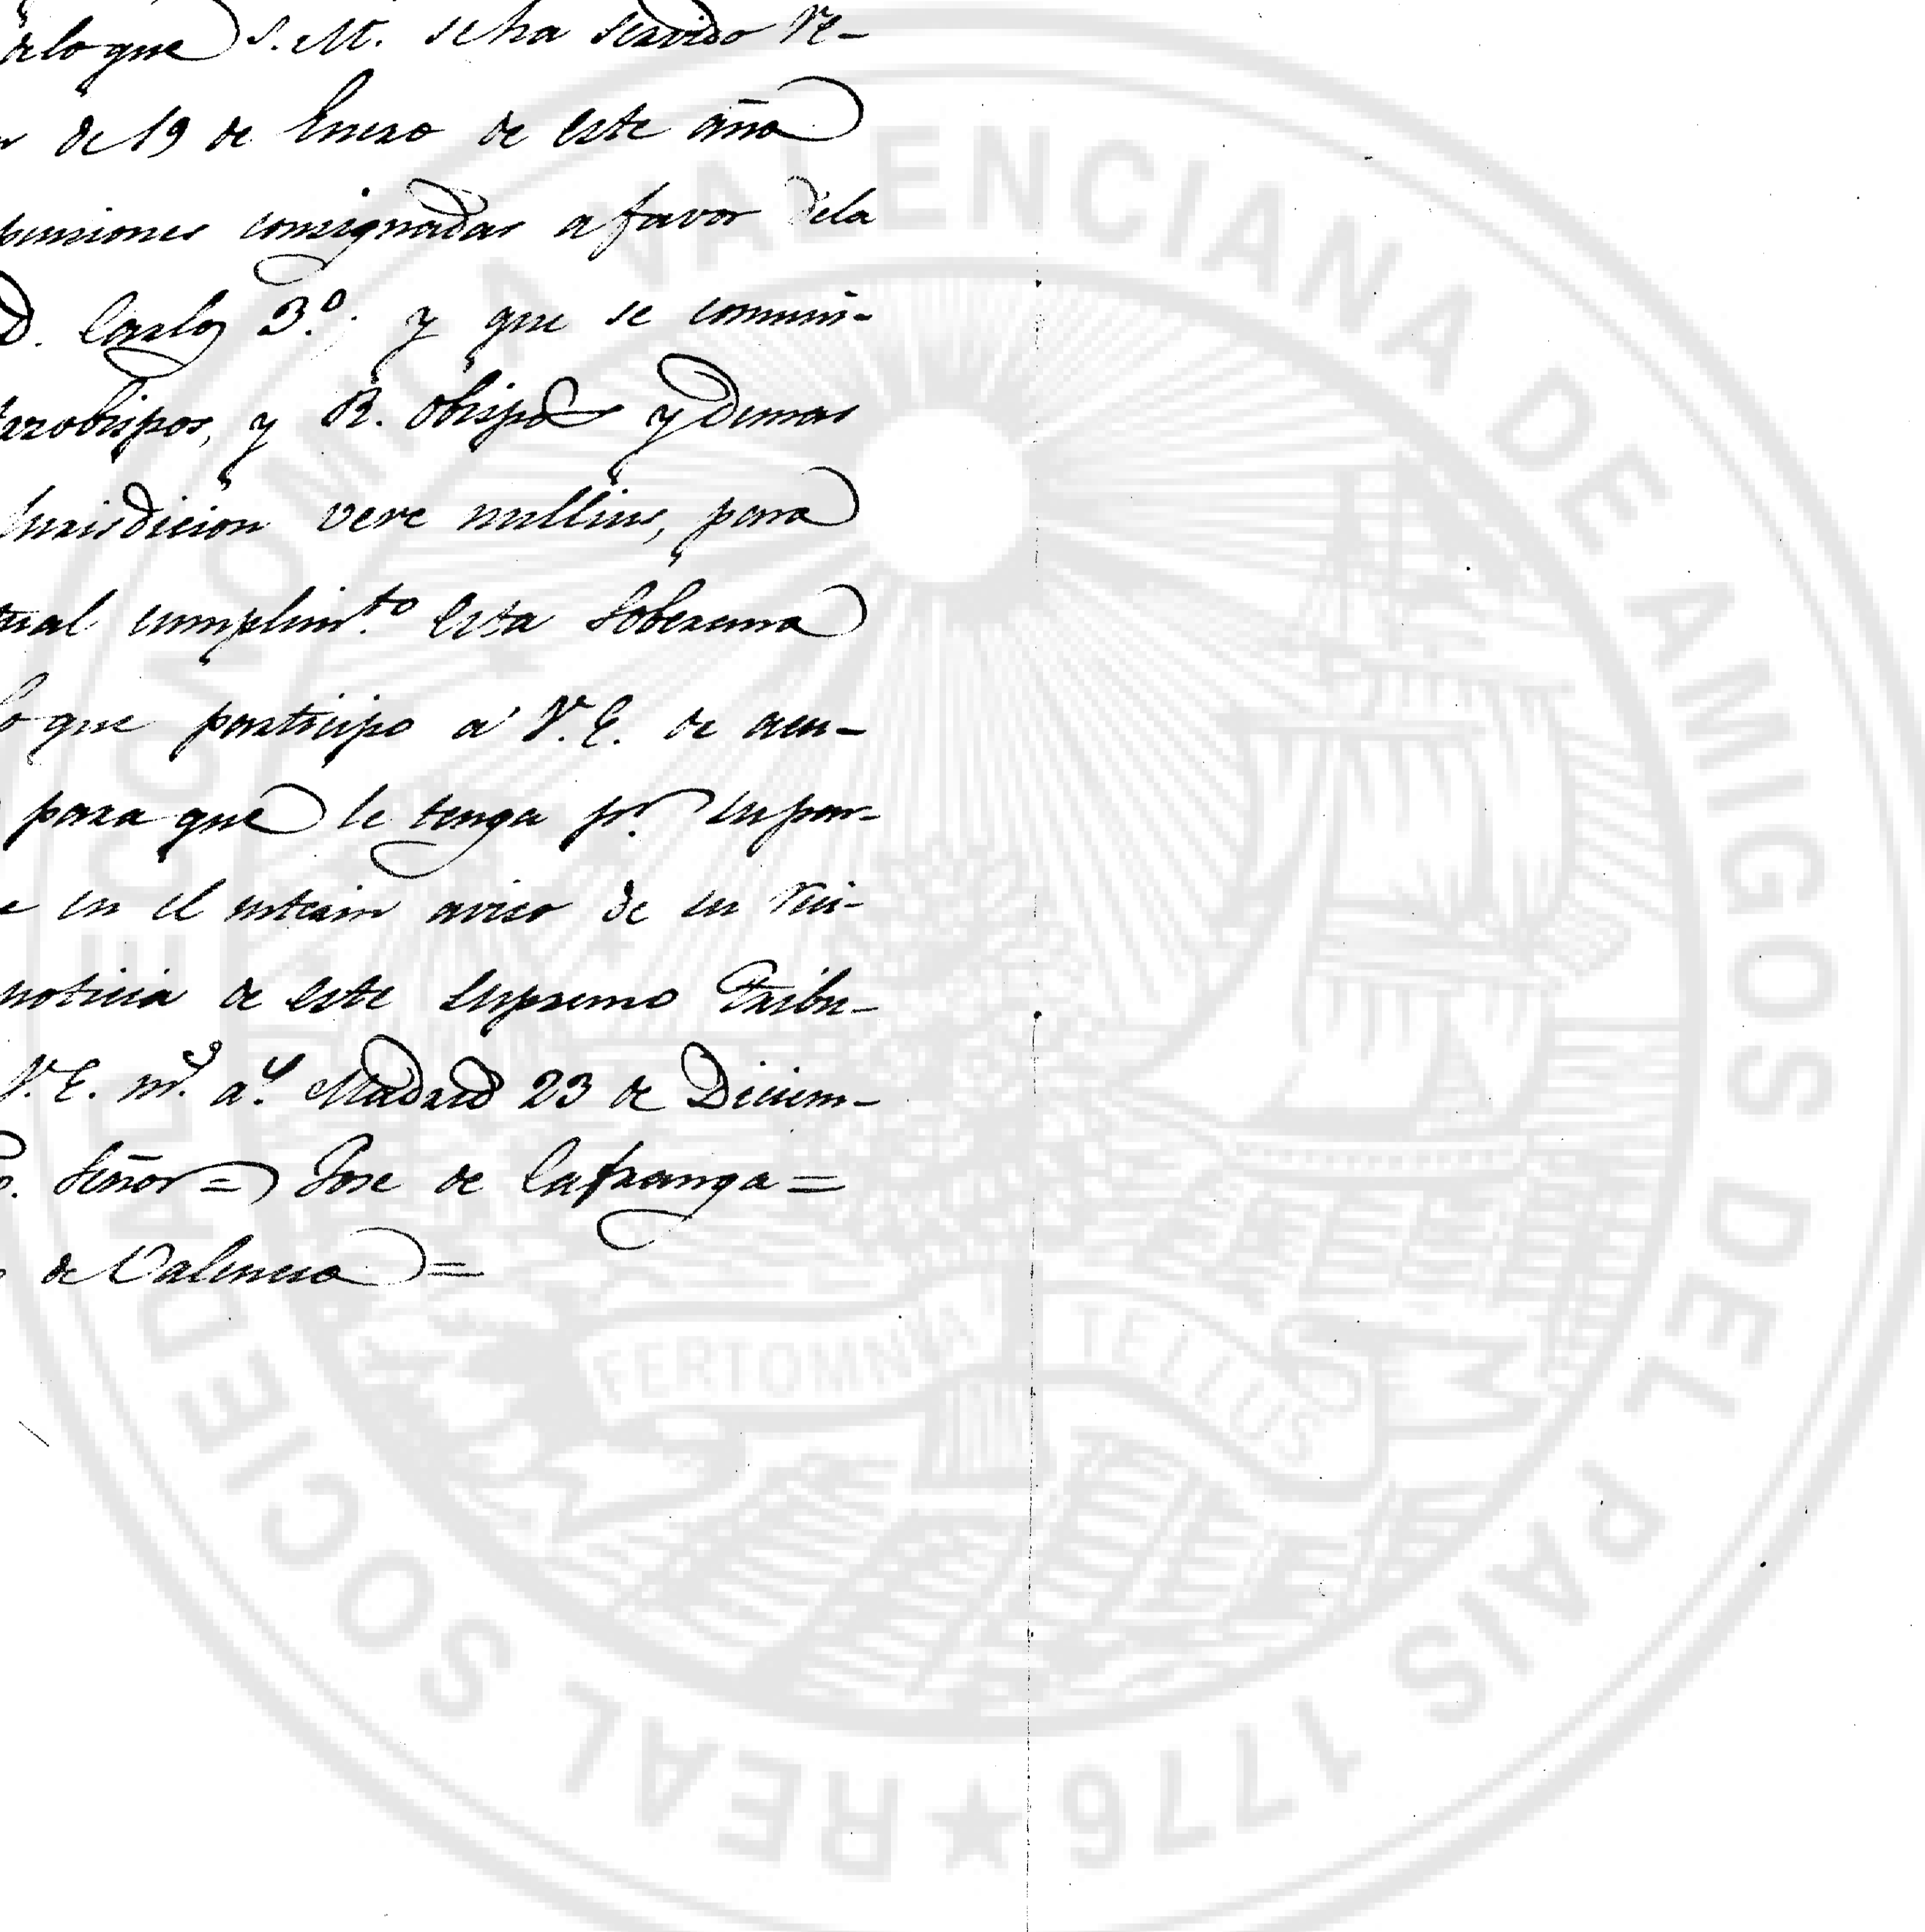 alo que S. M. se ha servido re-
de 19 de Enero de este año
pensiones consignadas a favor dela
D. Carlos 3.º y que se comuni-
Arzobispos, y R. Obispos y demas
Jurisdicion vere nullius, para
cumplim.to esta Soberana
lo que participo a V. E. de acu-
para que le tenga pr. su par-
en el interin aviso de su reci-
noticia de este supremo Tribu-
V. E. m.s a.s Madrid 23 de Diciem-
Señor = Jose de Cafranga =
de Valencia =
REAL SOCIEDAD ECONOMICA VALENCIANA DE AMIGOS DEL PAIS 1776
FERTOMNIA TELLUS